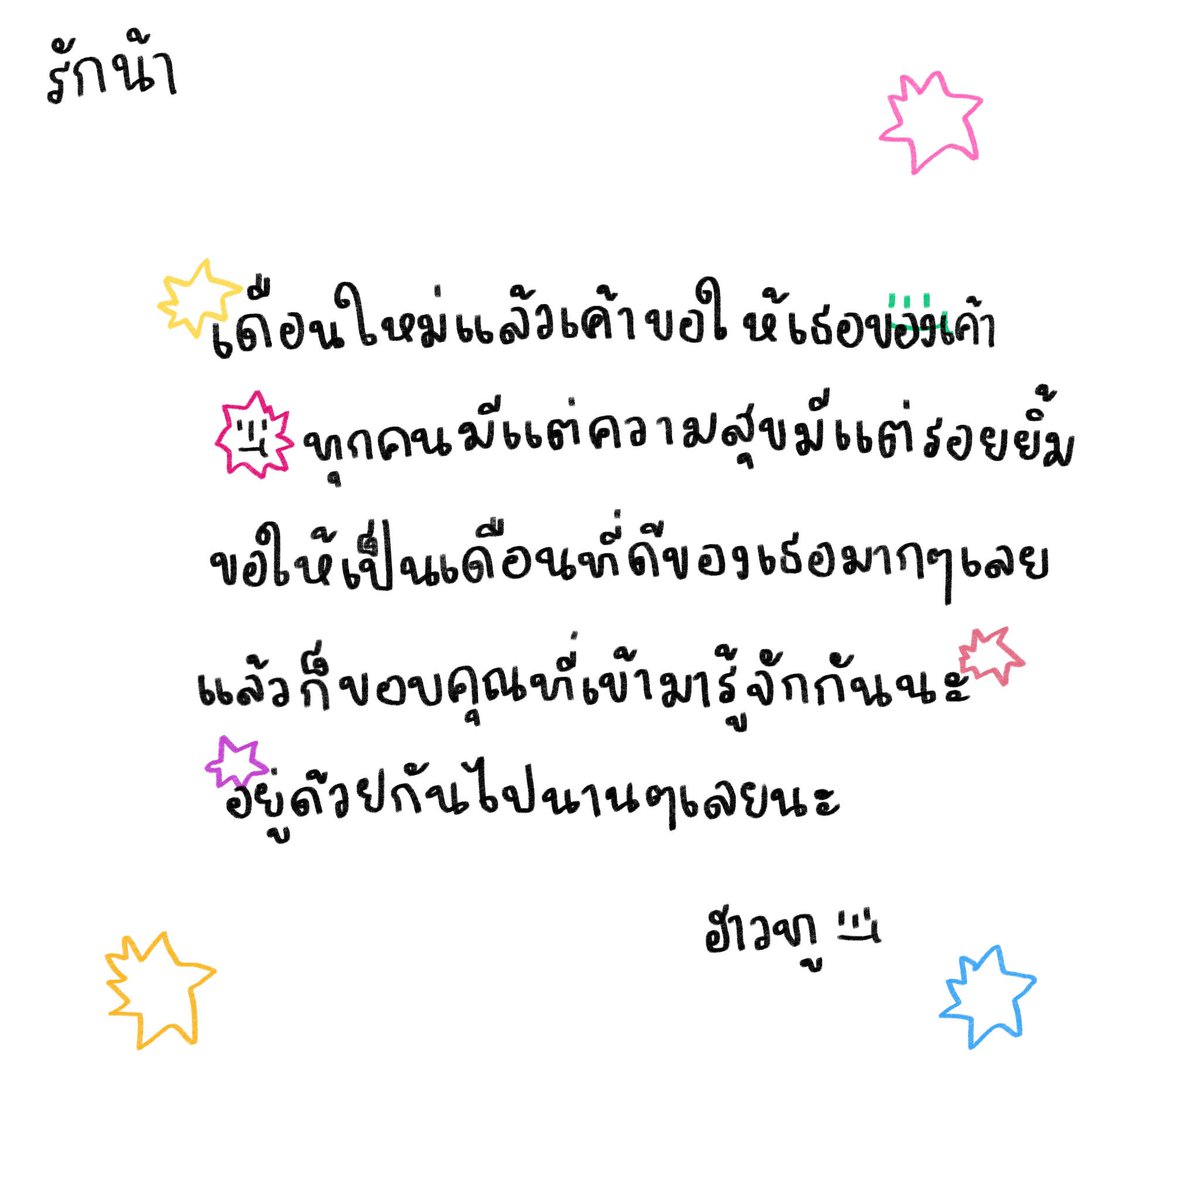 รักน้า
เดือนใหม่แล้วเค้าขอให้เธอของเค้า
ทุกคนมีแต่ความสุขมีแต่รอยยิ้ม
ขอให้เป็นเดือนที่ดีของเธอมากๆเลย
แล้วก็ขอบคุณที่เข้ามารู้จักกันนะ
อยู่ด้วยกันไปนานๆเลยนะ
ฮาวทู